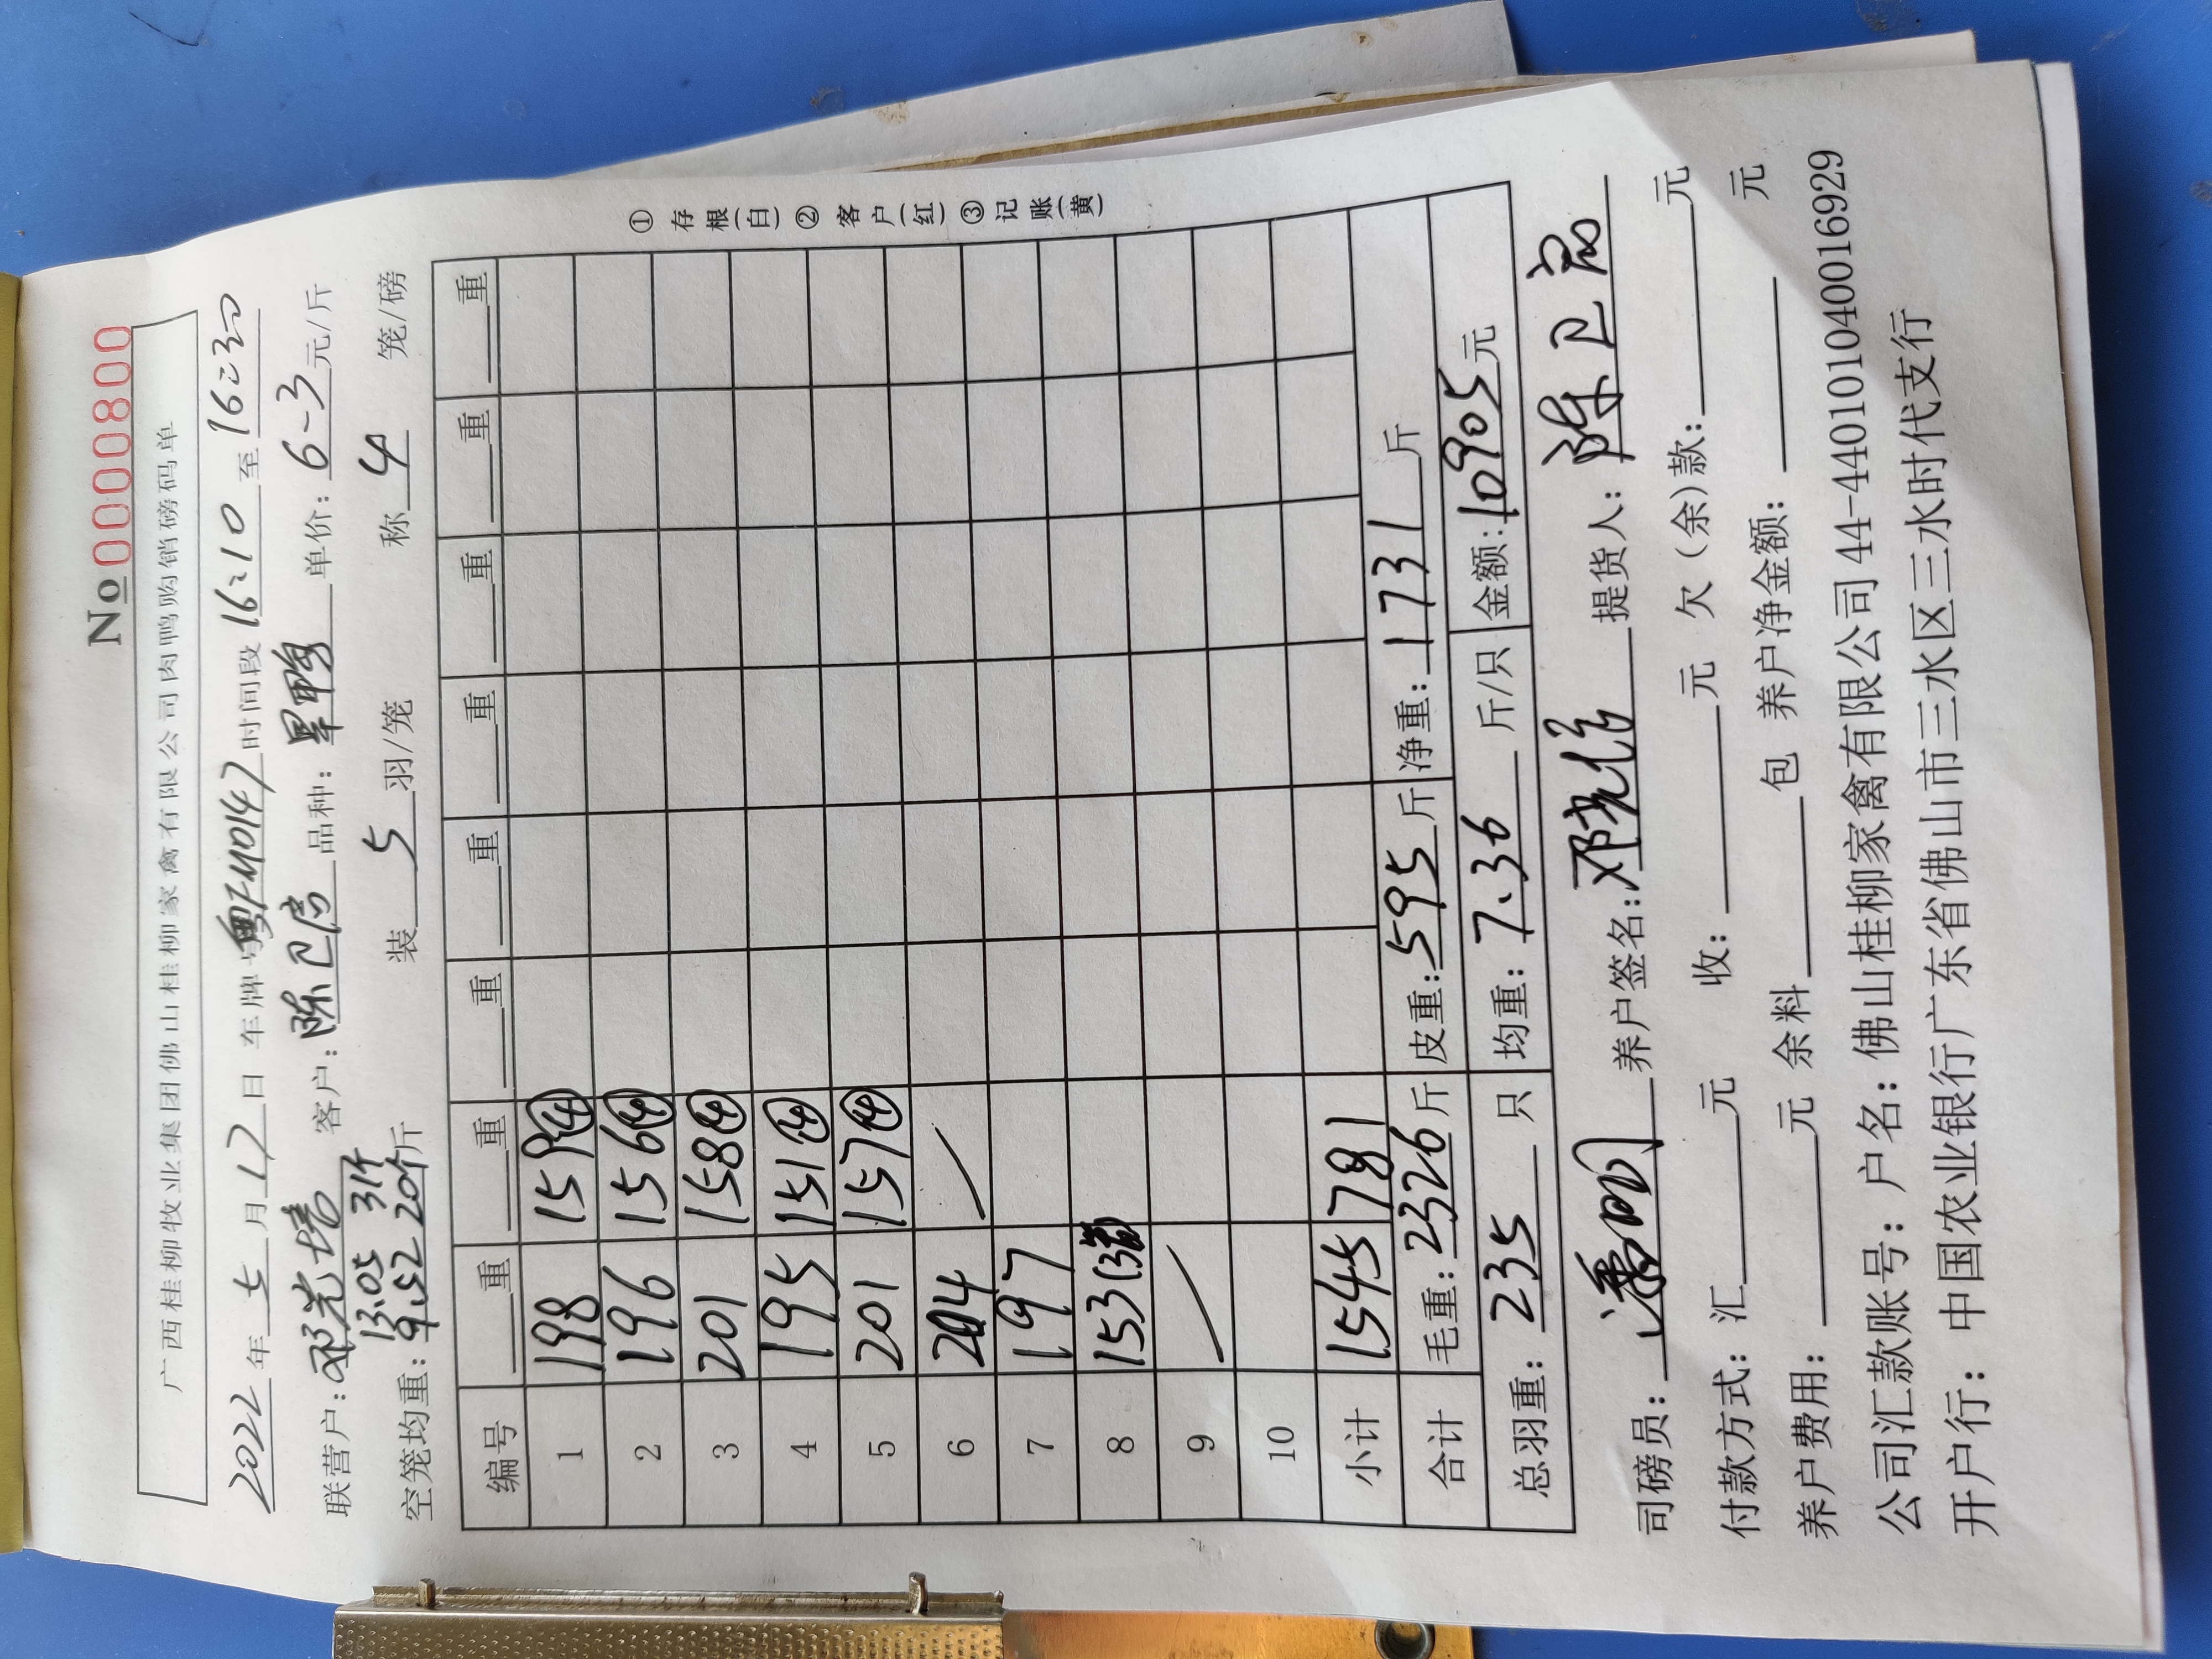 No 0000800
广西桂柳牧业集团佛山桂柳家禽有限公司肉鸭购销磅码单
2022年5月17日 车牌号 时间段16:10至16:30
联营户:邓光培 客户:陈卫 品种: 单价:6-3元/斤
13.05 31个
空笼均重:9.52 20个斤 装5羽/笼 称4笼/磅
编号 重 重 重 重 重 重 重 重
1 198 159④
2 196 156④
3 201 158④
4 195 151④
5 201 157④
6 204
7 197
8 153(3
9
10
小计 1545 781
合计 毛重:2326斤 皮重:595斤 净重:1731斤
总羽重:235只 均重:7.36斤/只 金额:10905元
① 存根(白) ② 客户(红) ③ 记账(黄)
司磅员:潘 养户签名:邓 提货人:陈卫
付款方式:汇 元 收: 元 欠(余)款: 元
养户费用: 元 余料 包 养户净金额: 元
公司汇款账号:户名:佛山桂柳家禽有限公司44-440101040016929
开户行:中国农业银行广东省佛山市三水区三水时代支行